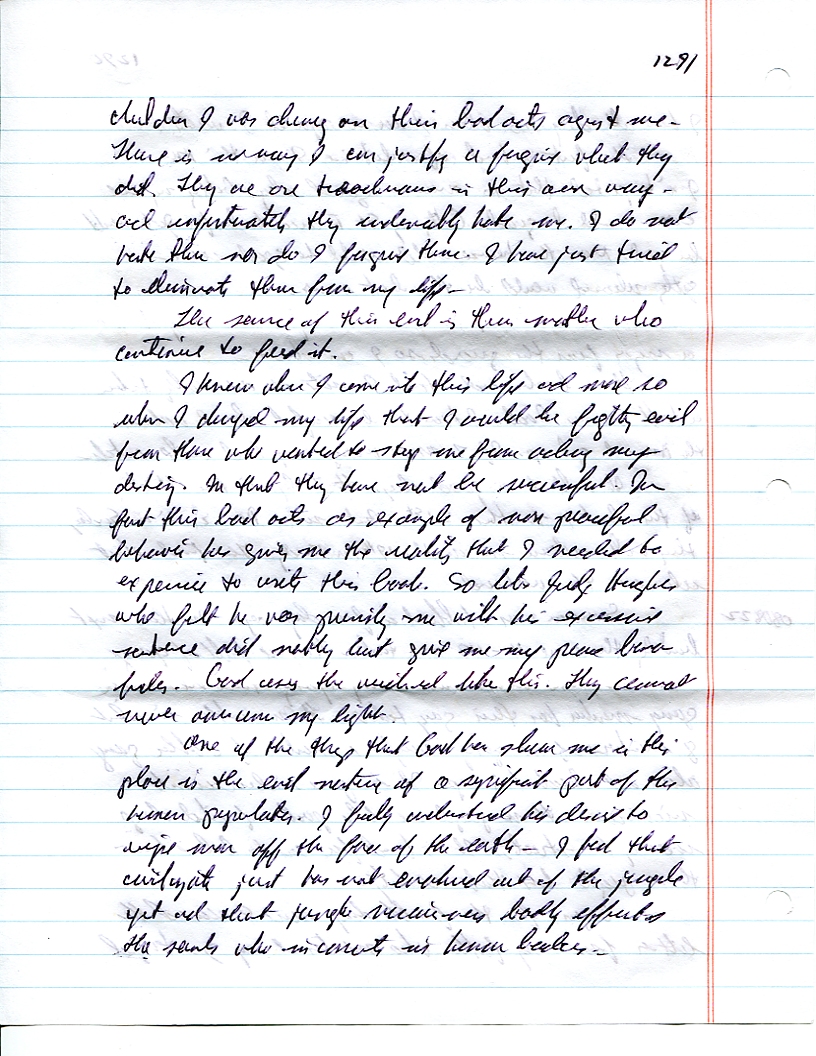 1291
children I was on their bad acts against me-
There is no way I can justify or forgive what they
did. They are treacherous in their own way-
and unfortunately they undeniably hate me. I do not
hate them nor do I forgive them. I have just tried
to eliminate them from my life-
The source of this evil is their mother who
continue to feed it.
I knew when I came into this life and more so
when I changed my life that I would be fighting evil
from those who wanted to stop me from my
destiny. In that they have not be successful. In
fact this bad acts as example of non peaceful
behavior has given me the reality that I needed to
experience to write this book. So like Judge Hughes
who felt he was me with his excessive
sentence did but give me my peace
God uses the wicked like this. They cannot
never overcome my light.
One of the things that God has shown me in this
place is the evil nature of a significant part of this
human population. I fully understand his desire to
wipe man off the face of the earth- I feel that
just has not evolved out of the jungle
yet and that jungle badly effects
the souls who in human bodies-